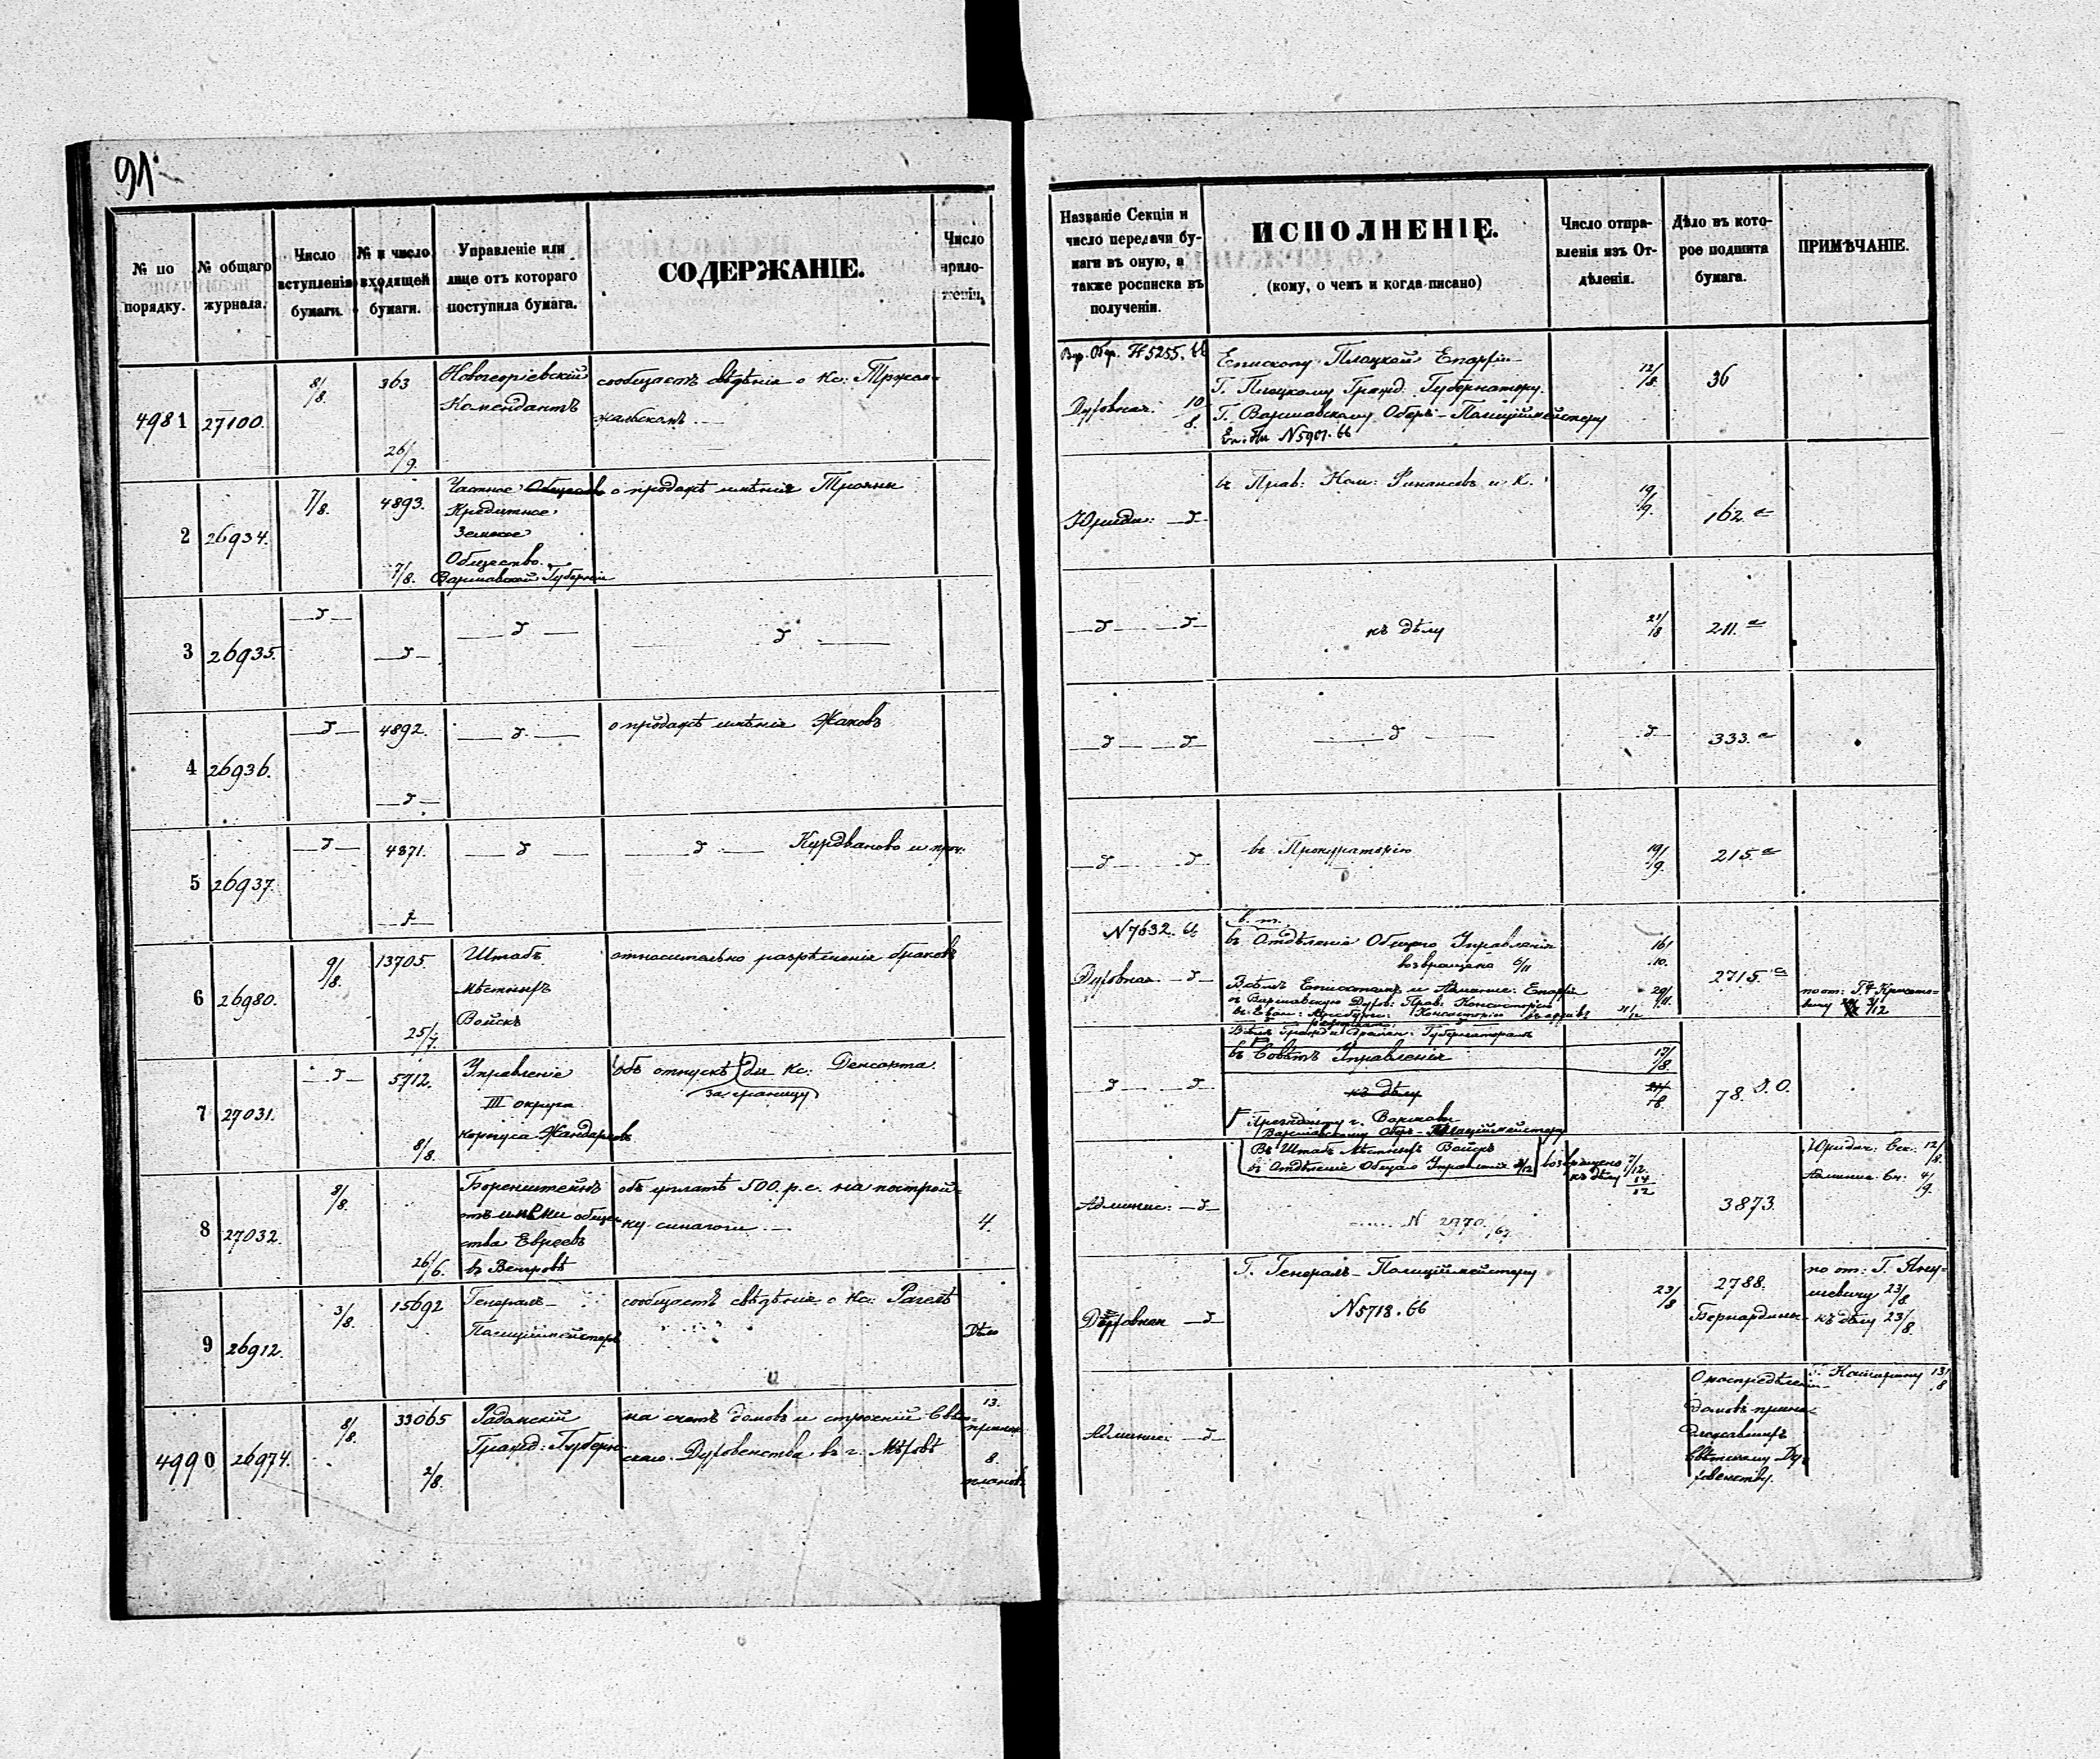 91
№ по порядку.
№ общаго журнала.
Число вступленія бумаги.
№ и число входящей бумаги.
Управленіе или лице отъ котораго поступила бумага.
СОДЕРЖАНІЕ.
Число прило-женій.
Названіе Секціи и число передачи бу-маги въ оную, а также росписка въ полученіи.
ИСПОЛНЕНІЕ.
(кому, о чемъ и когда писано)
Число отпра-вленія изъ От-дѣленія.
Дѣло въ кото-рое подшита бумага.
ПРИМѢЧАНІЕ.
4981 27100. 8/8. 363 26/9.
Новогеоргіевскій
Комендантъ
сообщаетъ свѣдѣнія о Кс:
№ 5255. 66
Духовная. 10/8.
Епископу Плоцкой Епархіи
Г. Плоцкому Гражд. Губернатору.
Г. Варшавскому Оберъ-Полицiймейстеру
№ 5907. 66
12/8. 36
2 26934. 7/8. 4893. 7/8.
Частное Общество
Кредитное
Земское
Общество
Варшавской Губерніи
о продажѣ имѣнія Трояны
Юриди: —д—
въ Прав: Ком: Финансовъ и К.
19/9. 162. а
3 26935. —д— —д— —д— —д—
—д— —д—
къ дѣлу
21/8 211. а
4 26936. —д— 4892. —д— —д—
о продажѣ имѣнія Жаковъ
—д— —д— —д— —д— 333. а
5 26937. —д— 4871. —д— —д— —д— Курдваново и проч:
—д— —д—
въ Прокураторію
19/9. 215. а
6 26980. 9/8. 13705. 25/7.
Штабъ
мѣстныхъ
Войскъ
относительно разрѣшенія браковъ
№ 7632. 66
Духовная —д—
въ Отдѣленіе Общаго Управленія
возвращено 6/11
Всѣмъ Епископамъ и Админис: Епархіи
въ Варшавскую Духов: Прав: Консисторію
Губернаторамъ
16/10. 29/11. 2715. а
7 27031. —д— 5712. 8/8.
Управленіе
III округа
корпуса Жандармовъ
объ отпускѣ для Кс: Денсарта
за границу
—д— —д—
въ Совѣтъ Управленія
къ дѣлу
Президенту г. Варшавы
Варшавскому Оберъ-Полицiймейстеру
13/8. 78. Э.О.
8 27032. 8/8. 26/6.
Боренштейнъ
отъ имени общес
тва Евреевъ
въ Венгровѣ
объ уплатѣ 500. р. с. на построй=
ку синагоги. —
4.
Админис: —д—
Въ Штабъ Мѣстныхъ Войскъ
въ Отдѣленіе Общаго Управленія возвращено 7/12.
къ дѣлу 14/12
№ 2970. 67
3873.
Юридич: Сек: 12/8.
Админис. Сек: 4/9.
9 26912. 3/8. 15692
Генералъ-
Полицiймейстеръ
сообщаетъ свѣдѣнія о Кс: Рагелѣ
Дѣло
Духовная —д—
Г. Генералъ-Полицiймейстеру
№ 5718. 66
23/8
2788.
Бернардины
по от: Г. Яну=
шевичу 23/8
къ дѣлу 23/8.
4990 26974. 8/8. 33065 2/8.
Радомскій
Гражд: Губерн.
на счетъ домовъ и строеній Свѣт=
скаго Духовенства въ г. Мѣховѣ
13.
8.
планов.
Админис: —д—
О распредѣленіи
домовъ прина-
длежавшихъ
Свѣтскому Ду-
ховенству.
13/8